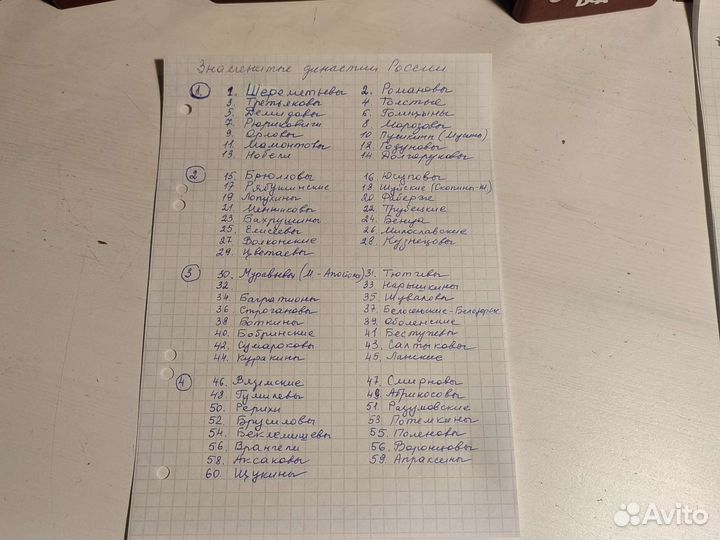 Знаменитые династии России
1 1. Шереметьевы 2. Романовы
3. Третьяковы 4. Толстые
5. Демидовы 6. Голицыны
7. Рюриковичи 8. Морозовы
9. Орловы 10. Пушкины (Мусины)
11. Мамонтовы 12. Годуновы
13. Нобели 14. Долгоруковы
2 15. Брюлловы 16. Юсуповы
17. Рябушинские 18. Шуйские (Скопины-Ш)
19. Лопухины 20. Фаберже
21. Меншиковы 22. Трубецкие
23. Бахрушины 24. Бенуа
25. Елисеевы 26. Милославские
27. Волконские 28. Кузнецовы
29. Цветаевы
3 30. Муравьевы (М-Апостолы) 31. Тютчевы
32 33. Нарышкины
34. Багратионы 35. Шуваловы
36. Строгановы 37. Белосельские-Белозерские
38. Боткины 39. Оболенские
40. Бобринские 41. Бестужевы
42. Сумароковы 43. Салтыковы
44. Куракины 45. Ланские
4 46. Вяземские 47. Смирновы
48. Гумилевы 49. Абрикосовы
50. Рерихи 51. Разумовские
52. Брусиловы 53. Потемкины
54. Беклемищевы 55. Поленовы
56. Врангели 56. Воронцовы
58. Аксаковы 59. Апраксины
60. Щукины
Avito